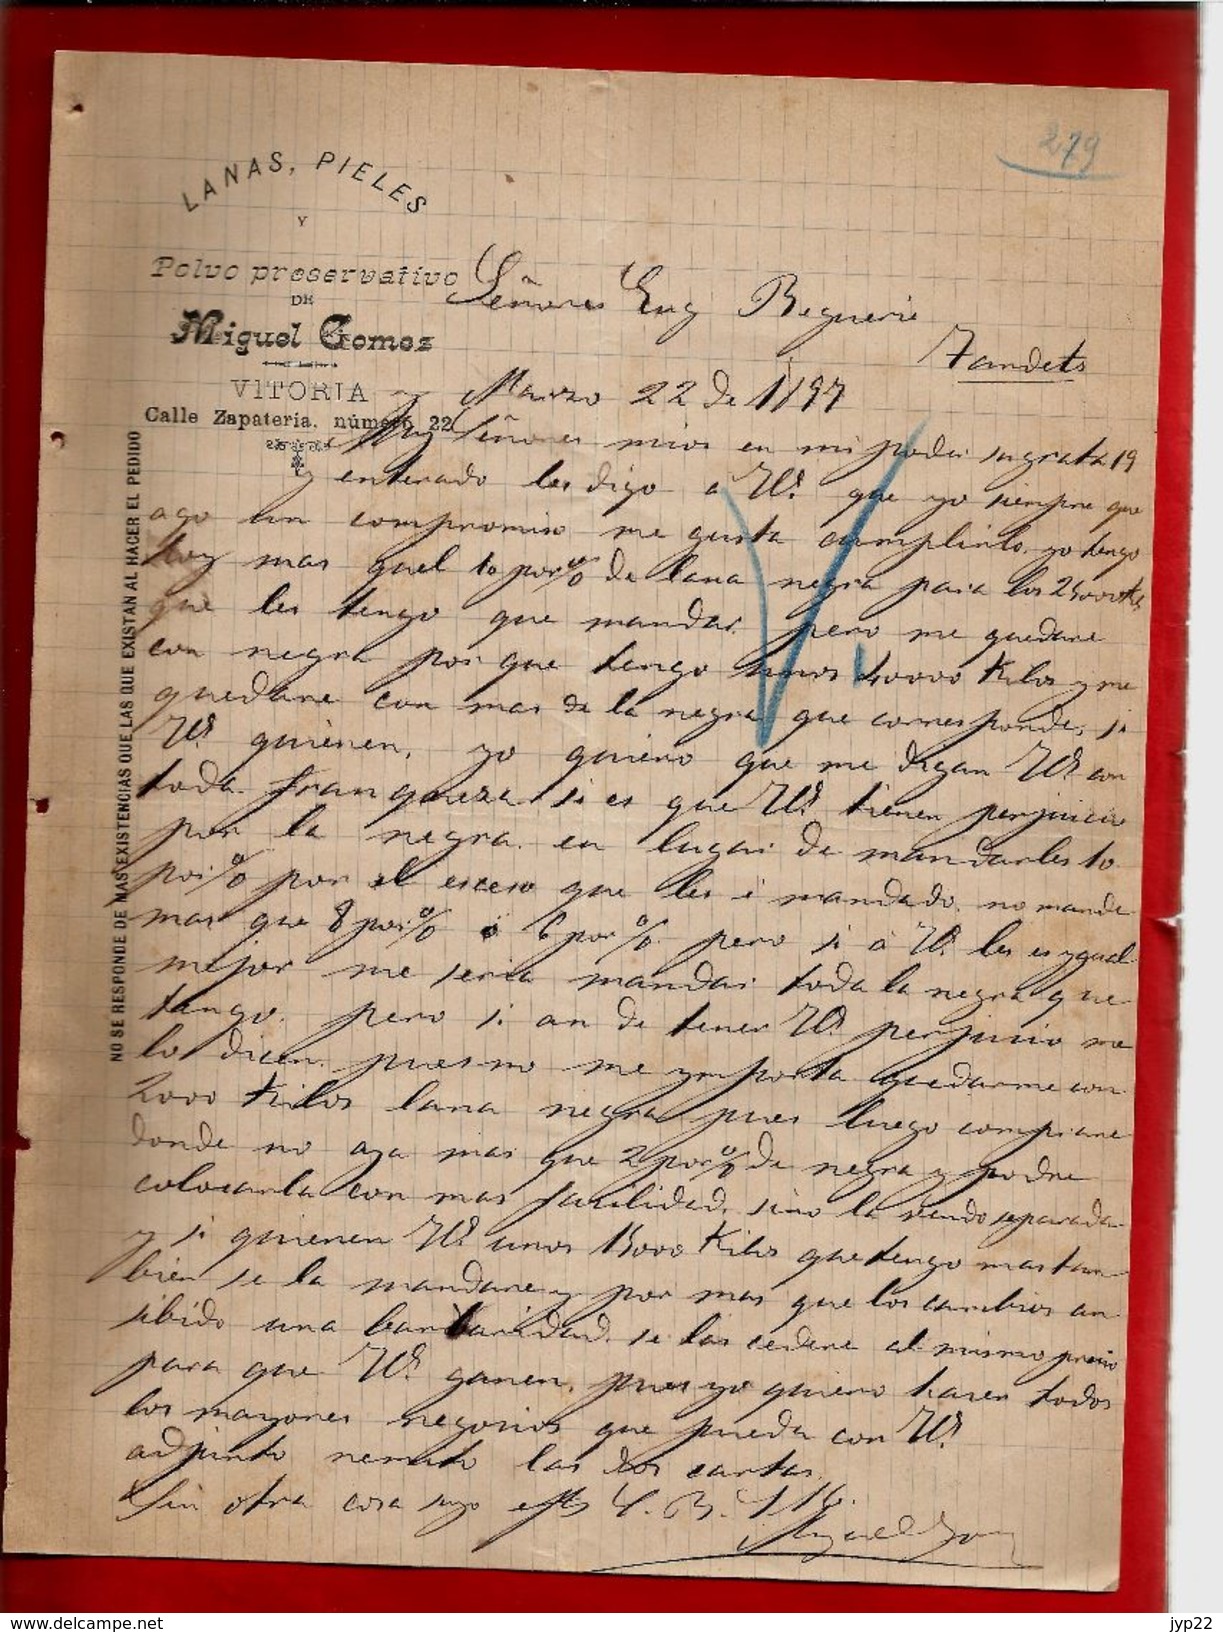 279
LANAS, PIELES
Y
Polvo preservativo
DE
Miguel Gomez
VITORIA
Calle Zapatería, número 22
NO SE RESPONDE DE MAS EXISTENCIAS QUE LAS QUE EXISTAN AL HACER EL PEDIDO
Señores Eug Beguerie
Tardets
y Marzo 22 de 1897
Muy Señores mios en mi poder su grata 19
y enterado les digo a Vds que yo siempre que
ago un compromiso me gusta cumplirlo, yo tengo
hoy mas quel 10 por % de lana negra para los 25000 Ks
que les tengo que mandar. pero me quedare
con negra por que tengo unos 40000 Kilos y me
quedare con mas de la negra que corresponde, si
Vds quieren, yo quiero que me digan Vds con
toda franqueza si es que Vds tienen perjuicio
por la negra. en lugar de mandarles 10
por % por el esceso que les é mandado. no mande
mas que 8 por % o 6 por %. pero si á Vds les es ygual
mejor me seria mandar toda la negra que
tengo. pero si an de tener Vds perjuicio me
lo dicen. pues no me ymporta quedarme con
2000 Kilos lana negra pues luego comprare
donde no aya mas que 2 por % de negra y podre
colocarla con mas facilidad, sino la vendo separada
y si quieren Vds unos 15000 Kilos que tengo mas tan
bien se la mandare y por mas que los cambios an
sibido una barbaridad. se las cedere al mismo precio
para que Vds ganen, pues yo quiero hacer todos
los mayores negocios que pueda con Vds
adjunto remito las dos cartas
Sin otra cosa suyo
Miguel Gomez
delcampe.net
jyp22